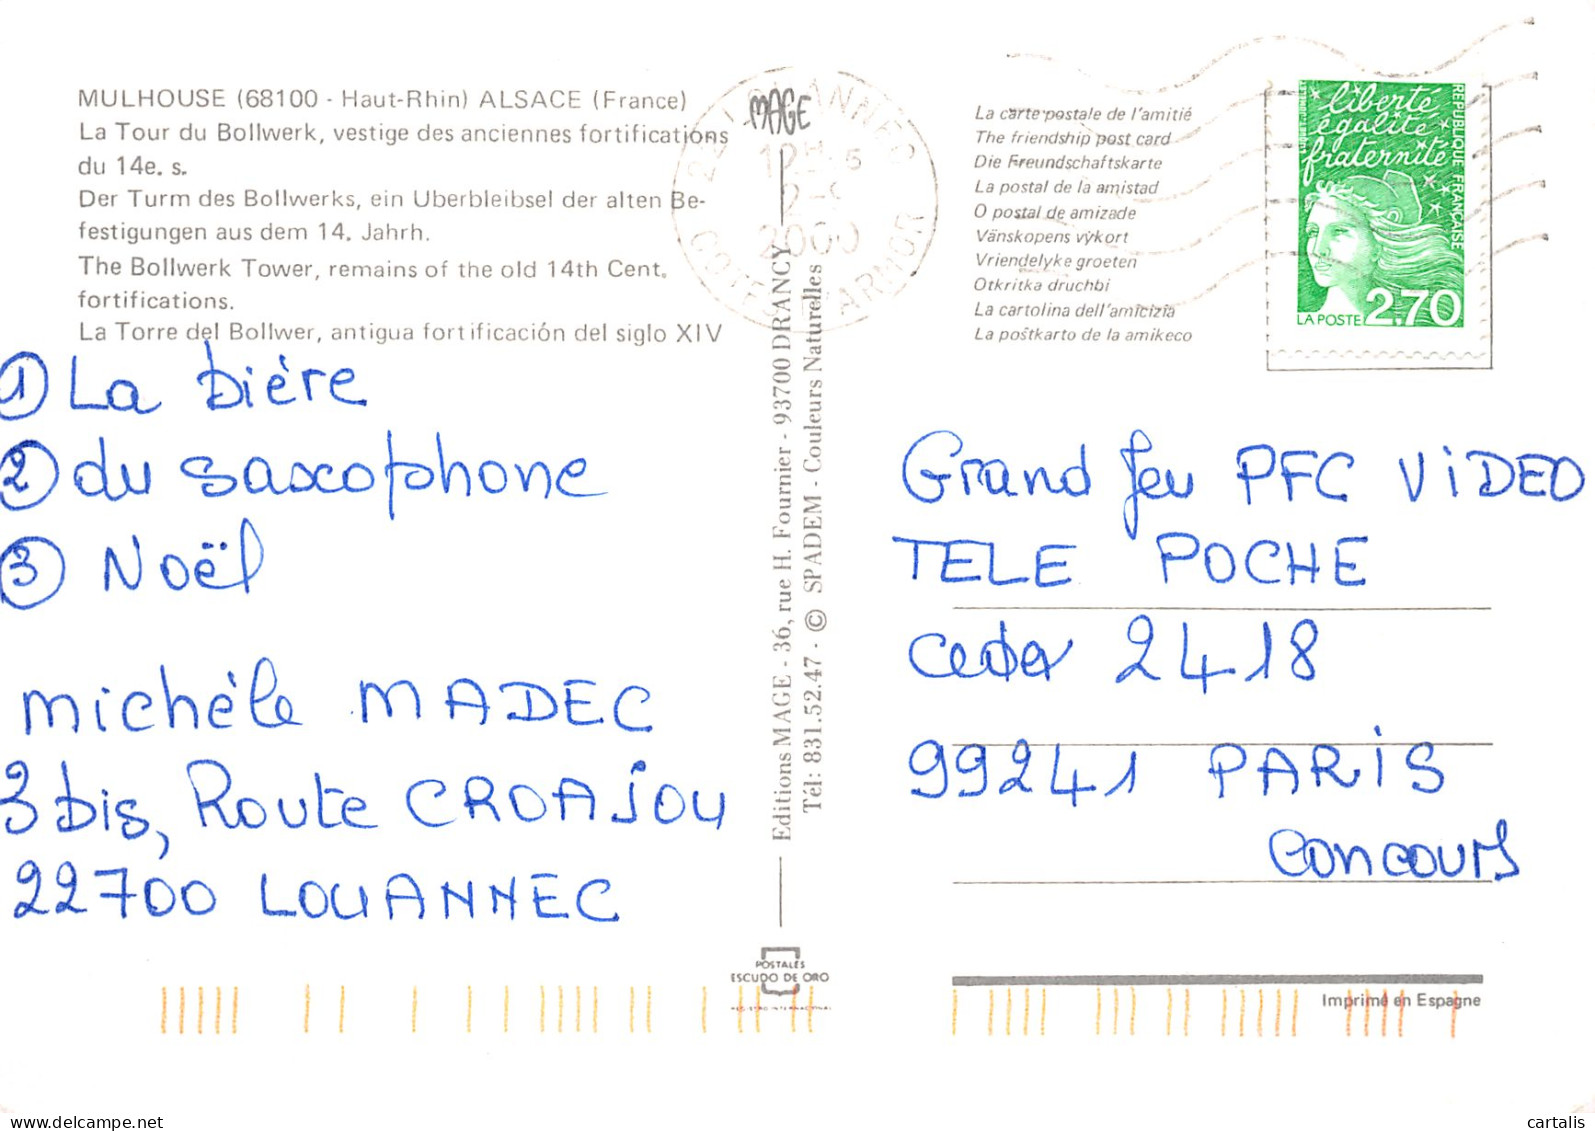 MULHOUSE (68100 - Haut-Rhin) ALSACE (France)
La Tour du Bollwerk, vestige des anciennes fortifications
du 14e. s.
Der Turm des Bollwerks, ein Uberbleibsel der alten Be-
festigungen aus dem 14. Jahrh.
The Bollwerk Tower, remains of the old 14th Cent.
fortifications.
La Torre del Bollwer, antigua fortificación del siglo XIV
① La bière
② du saxophone
③ Noël
Michèle MADEC
3 bis, Route CROAJOU
22700 LOUANNEC
MAGE
22 LOUANNEC
12H
2-9
2000
COTES D'ARMOR
Editions MAGE - 36, rue H. Fournier - 93700 DRANCY
Tél: 831.52.47 - © SPADEM - Couleurs Naturelles
POSTALES
ESCUDO DE ORO
REGISTRO INTERNACIONAL
La carte postale de l'amitié
The friendship post card
Die Freundschaftskarte
La postal de la amistad
O postal de amizade
Vänskopens vykort
Vriendelyke groeten
Otkritka druchbi
La cartolina dell'amicizia
La poŝtkarto de la amikeco
liberté
égalité
fraternité
REPUBLIQUE FRANÇAISE
LA POSTE 2,70
Grand Jeu PFC VIDEO
TELE POCHE
cedex 2418
99241 PARIS
concours
Imprimé en Espagne
cartalis
www.delcampe.net